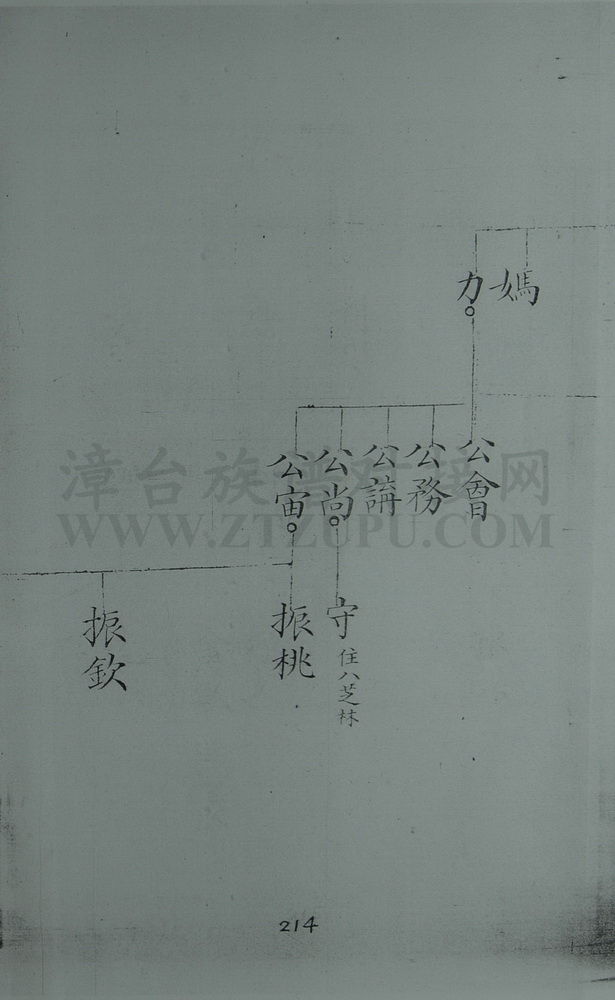 媽
力
公會
公務
公講
公尚
公宙
守
住八芝林
振桃
振欽
漳台族谱对接网
WWW.ZTZUPU.COM
214